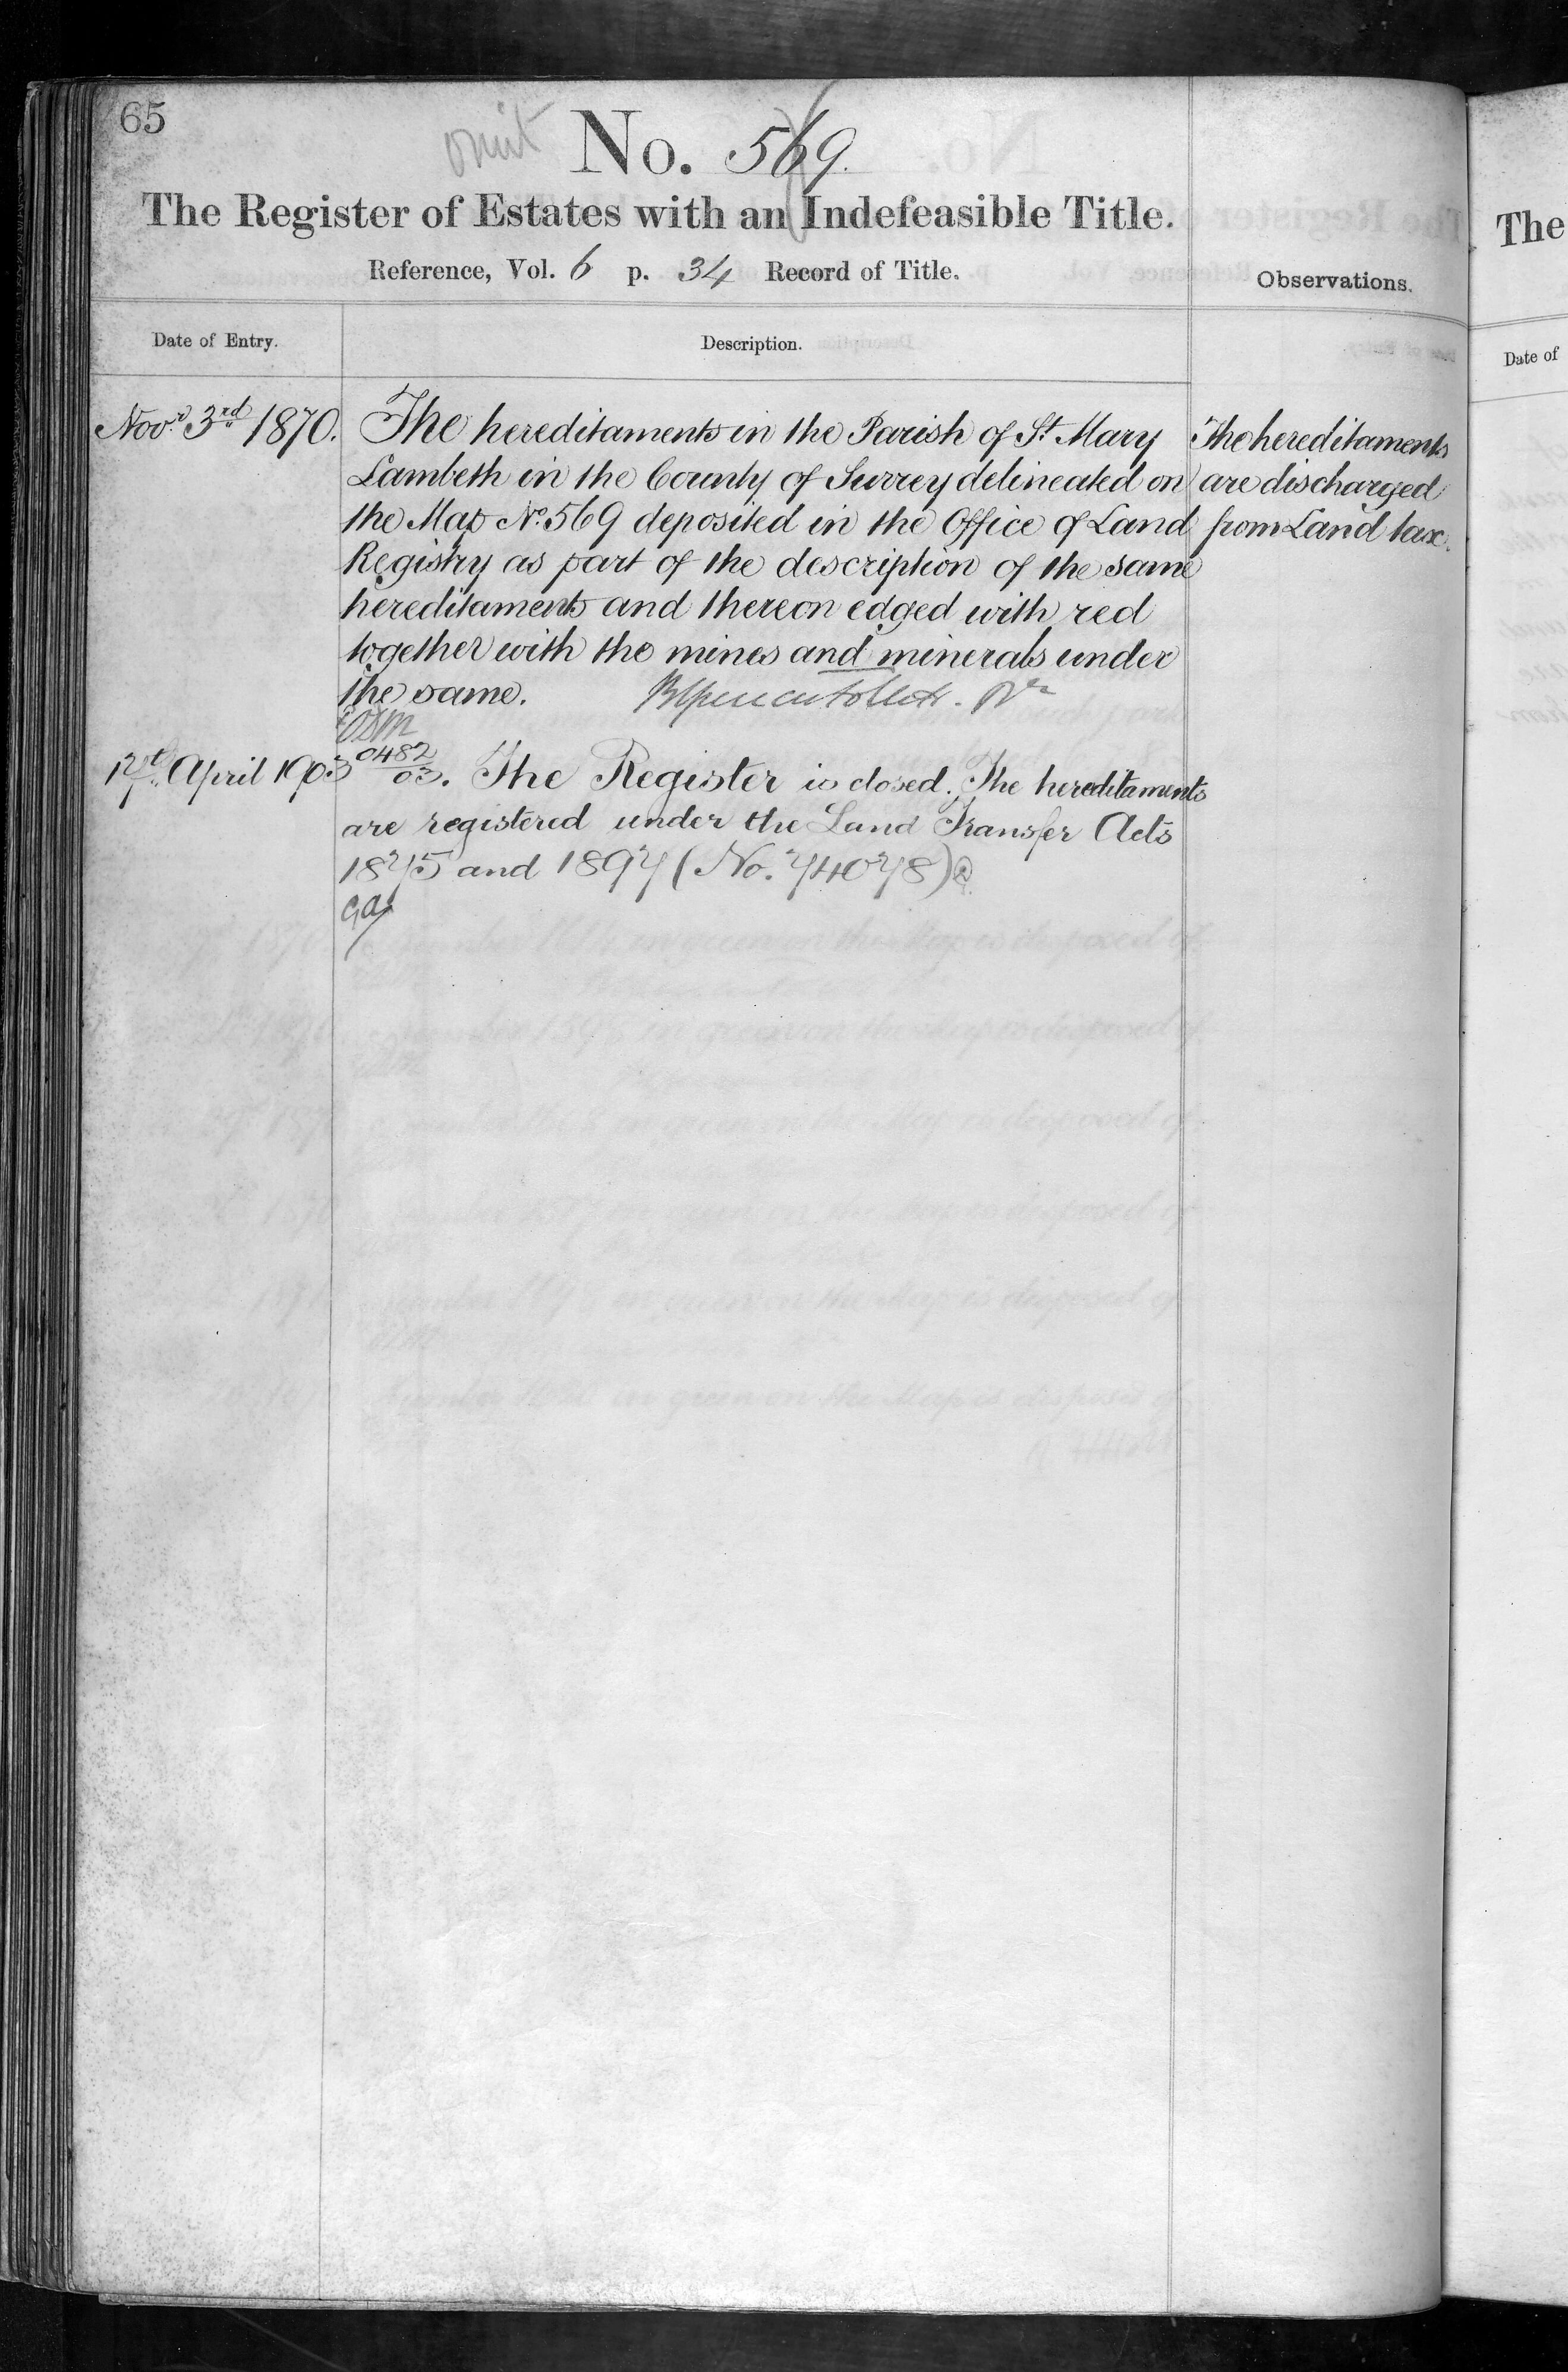 65
omit
No. 569.
The Register of Estates with an Indefeasible Title.
Reference, Vol. 6 p. 34 Record of Title.
Observations.
Date of Entry.
Description.
Novr. 3rd 1870.
The hereditaments in the Parish of St. Mary
Lambeth in the County of Surrey delineated on
the Map No. 569 deposited in the Office of Land
Registry as part of the description of the same
hereditaments and thereon edged with red
together with the mines and minerals under
the same.
The hereditaments
are discharged
from Land tax.
April 1903
0482
03. The Register is closed. The hereditaments
are registered under the Land Transfer Acts
1875 and 1897 (No. 74078)
The
Date of